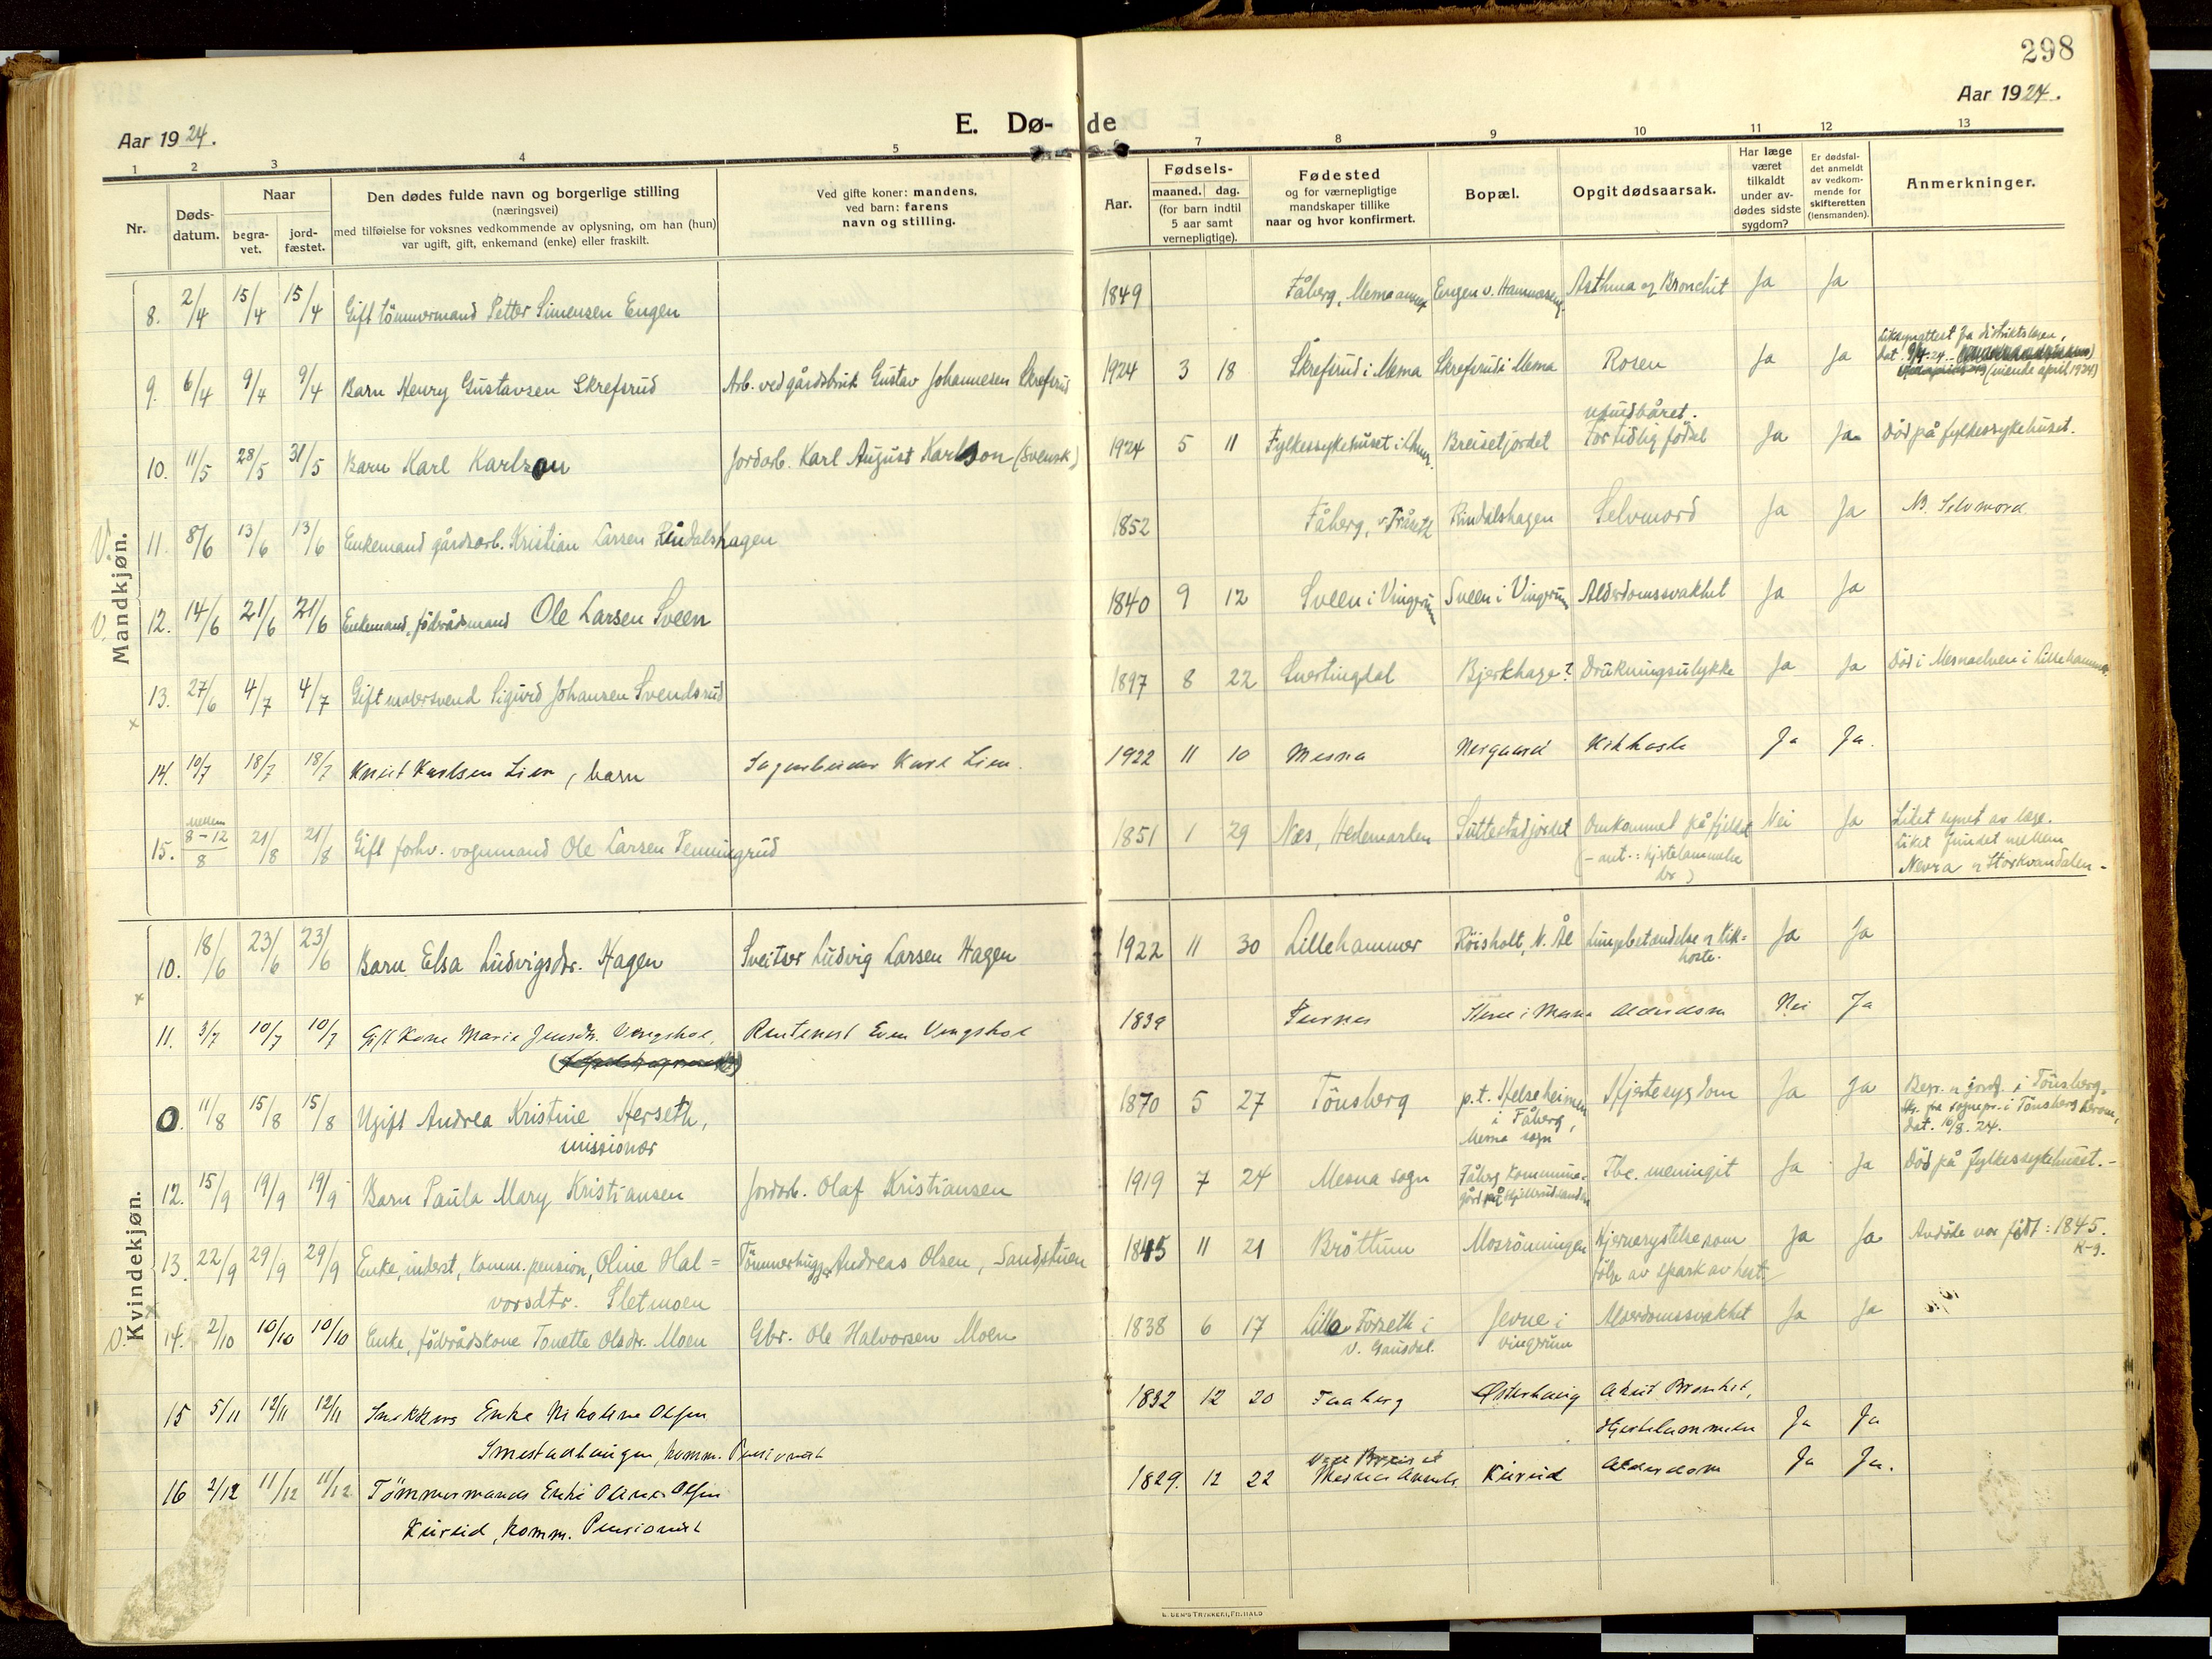 298
Aar 1924.
Aar 1924.
E. Dø-de
1 2 3 4 5 7 8 9 10 11 12 13
Nr.
Døds-datum.
Naar
begra-vet.
jord-fæstet.
Den dødes fulde navn og borgerlige stilling
(næringsvei)
med tilføielse for voksnes vedkommende av oplysning, om han (hun)
var ugift, gift, enkemand (enke) eller fraskilt.
Ved gifte koner: mandens,
ved barn: farens
navn og stilling.
Aar.
Fødsels-
maaned. dag.
(for barn indtil
5 aar samt
vernepligtige).
Fødested
og for værnepligtige
mandskaper tillike
naar og hvor konfirmert.
Bopæl.
Opgit dødsaarsak.
Har læge
været
tilkaldt
under av-
dødes sidste
sygdom?
Er dødsfal-
det anmeldt
av vedkom-
mende for
skifteretten
(lensmanden).
Anmerkninger.
Mandkjøn.
8. 2/4 15/4 15/4 Gift tömmermand Petter Simensen Engen 1849 Fåberg, Mesna annex Engen v. Hammaseng Asthma og Bronchit Ja Ja
9. 6/4 9/4 9/4 Barn Henry Gustavsen Skrefsrud Arb. ved gårdsbruk Gustav Johannesen Skrefsrud 1924 3 18 Skrefsrud i Mesna Skrefsrud i Mesna Rosen Ja Ja
dat. 9/4.24
(niende april 1924)
10. 11/5 28/5 31/5 Barn Karl Karlson Jordarb. Karl August Karlson (svensk) 1924 5 11 Fylkessykehuset i Lhmr. Breisetjordet ufuldbåret. For tidlig födsel Ja Ja Död på fylkessykehuset.
V. 11. 8/6 13/6 13/6 Enkemand gårdsarb. Kristian Larsen Rindalshagen 1852 Fåberg, v. Tråseth Rindalshagen Selvmord Ja Ja NB. Selvmord
V. 12. 14/6 21/6 21/6 Enkemand, födrådsmand Ole Larsen Sveen 1840 9 12 Sveen i Vingrum Sveen i Vingrum Alderdomssvakhet Ja Ja
13. 27/6 4/7 4/7 Gift malersvend Sigurd Johansen Svendsrud 1897 8 22 Snertingdal Bjerkhage? Drukningsulykke Ja Ja Död i Mesnaelven i Lillehammer.
x 14. 10/7 18/7 18/7 Knut Karlsen Lien, barn Sagarbeider Karl Lien. 1922 11 10 Mesna Nergaard Kikhoste Ja Ja.
15. mellem 8-12/8 21/8 21/8 Gift forhv. vognmand Ole Larsen Penningrud 1851 1 29 Næs, Hedemarken Suttestadjordet Omkommet på fjeldet Nei Ja Liket synet av læge.
Liket fundet mellem
Nevra og Storkvandalen -
Kvindekjøn.
10. 18/6 23/6 23/6 Barn Elsa Ludvigsdr. Hagen Sveitser Ludvig Larsen Hagen 1922 11 30 Lillehammer Röisholt, N. Ål Lungebetændelse og kik-
hoste. Ja Ja
x 11. 3/7 10/7 10/7 Gift Kone Marie Jensdtr. Vingshol, Rentenist Even Vingshol 1839 Furnes Alderdom Nei Ja
0. 11/8 15/8 15/8 Ugift Andrea Kristine Herseth,
missionær 1870 5 27 Tönsberg p.t. Helseheimen
i Fåberg,
Mesna sogn Hjertesygdom Ja Ja Begr. og jordf. i Tönsberg.
dat. 16/8. 24.
12. 15/9 19/9 19/9 Barn Paula Mary Kristiansen Jordarb. Olaf Kristiansen 1919 7 24 Mesna sogn Fåberg kommune-
gård på Tbc. meningit Ja Ja Död på fylkessykehuset. -
13. 22/9 29/9 29/9 Enke, inderst, komm. pension, Oline Hal=
vorsdtr. Sletmoen Tömmerhugger Andreas Olsen, Sandstuen 1845 11 21 Bröttum Mosrönningen Hjernerystelse som
fölge av spark av hest. Ja Ja Avdöde var född: 1845.
K-g.
V. 14. 2/10 10/10 10/10 Enke, födrådskone Tonette Olsdr. Moen Gbr. Ole Halvorsen Moen 1838 6 17 Lilla Forseth i
V. Gausdal. Jevne i
Vingrum Alderdomssvakhet Ja Ja
15 5/11 12/11 12/11 Snekkers Enke Nikoline Olsen
Smestadhaugen, komm. Pensionist 1832 12 20 Faaberg Østerhaug Akut Bronkit,
Hjertelammelse Ja Ja
16 2/12 11/12 11/12 Tömmermands Enke Oline Olsen
Kurud, komm. Pensionist 1829. 12 22 Mesna Annex. Kurud Alderdom Ja Ja.